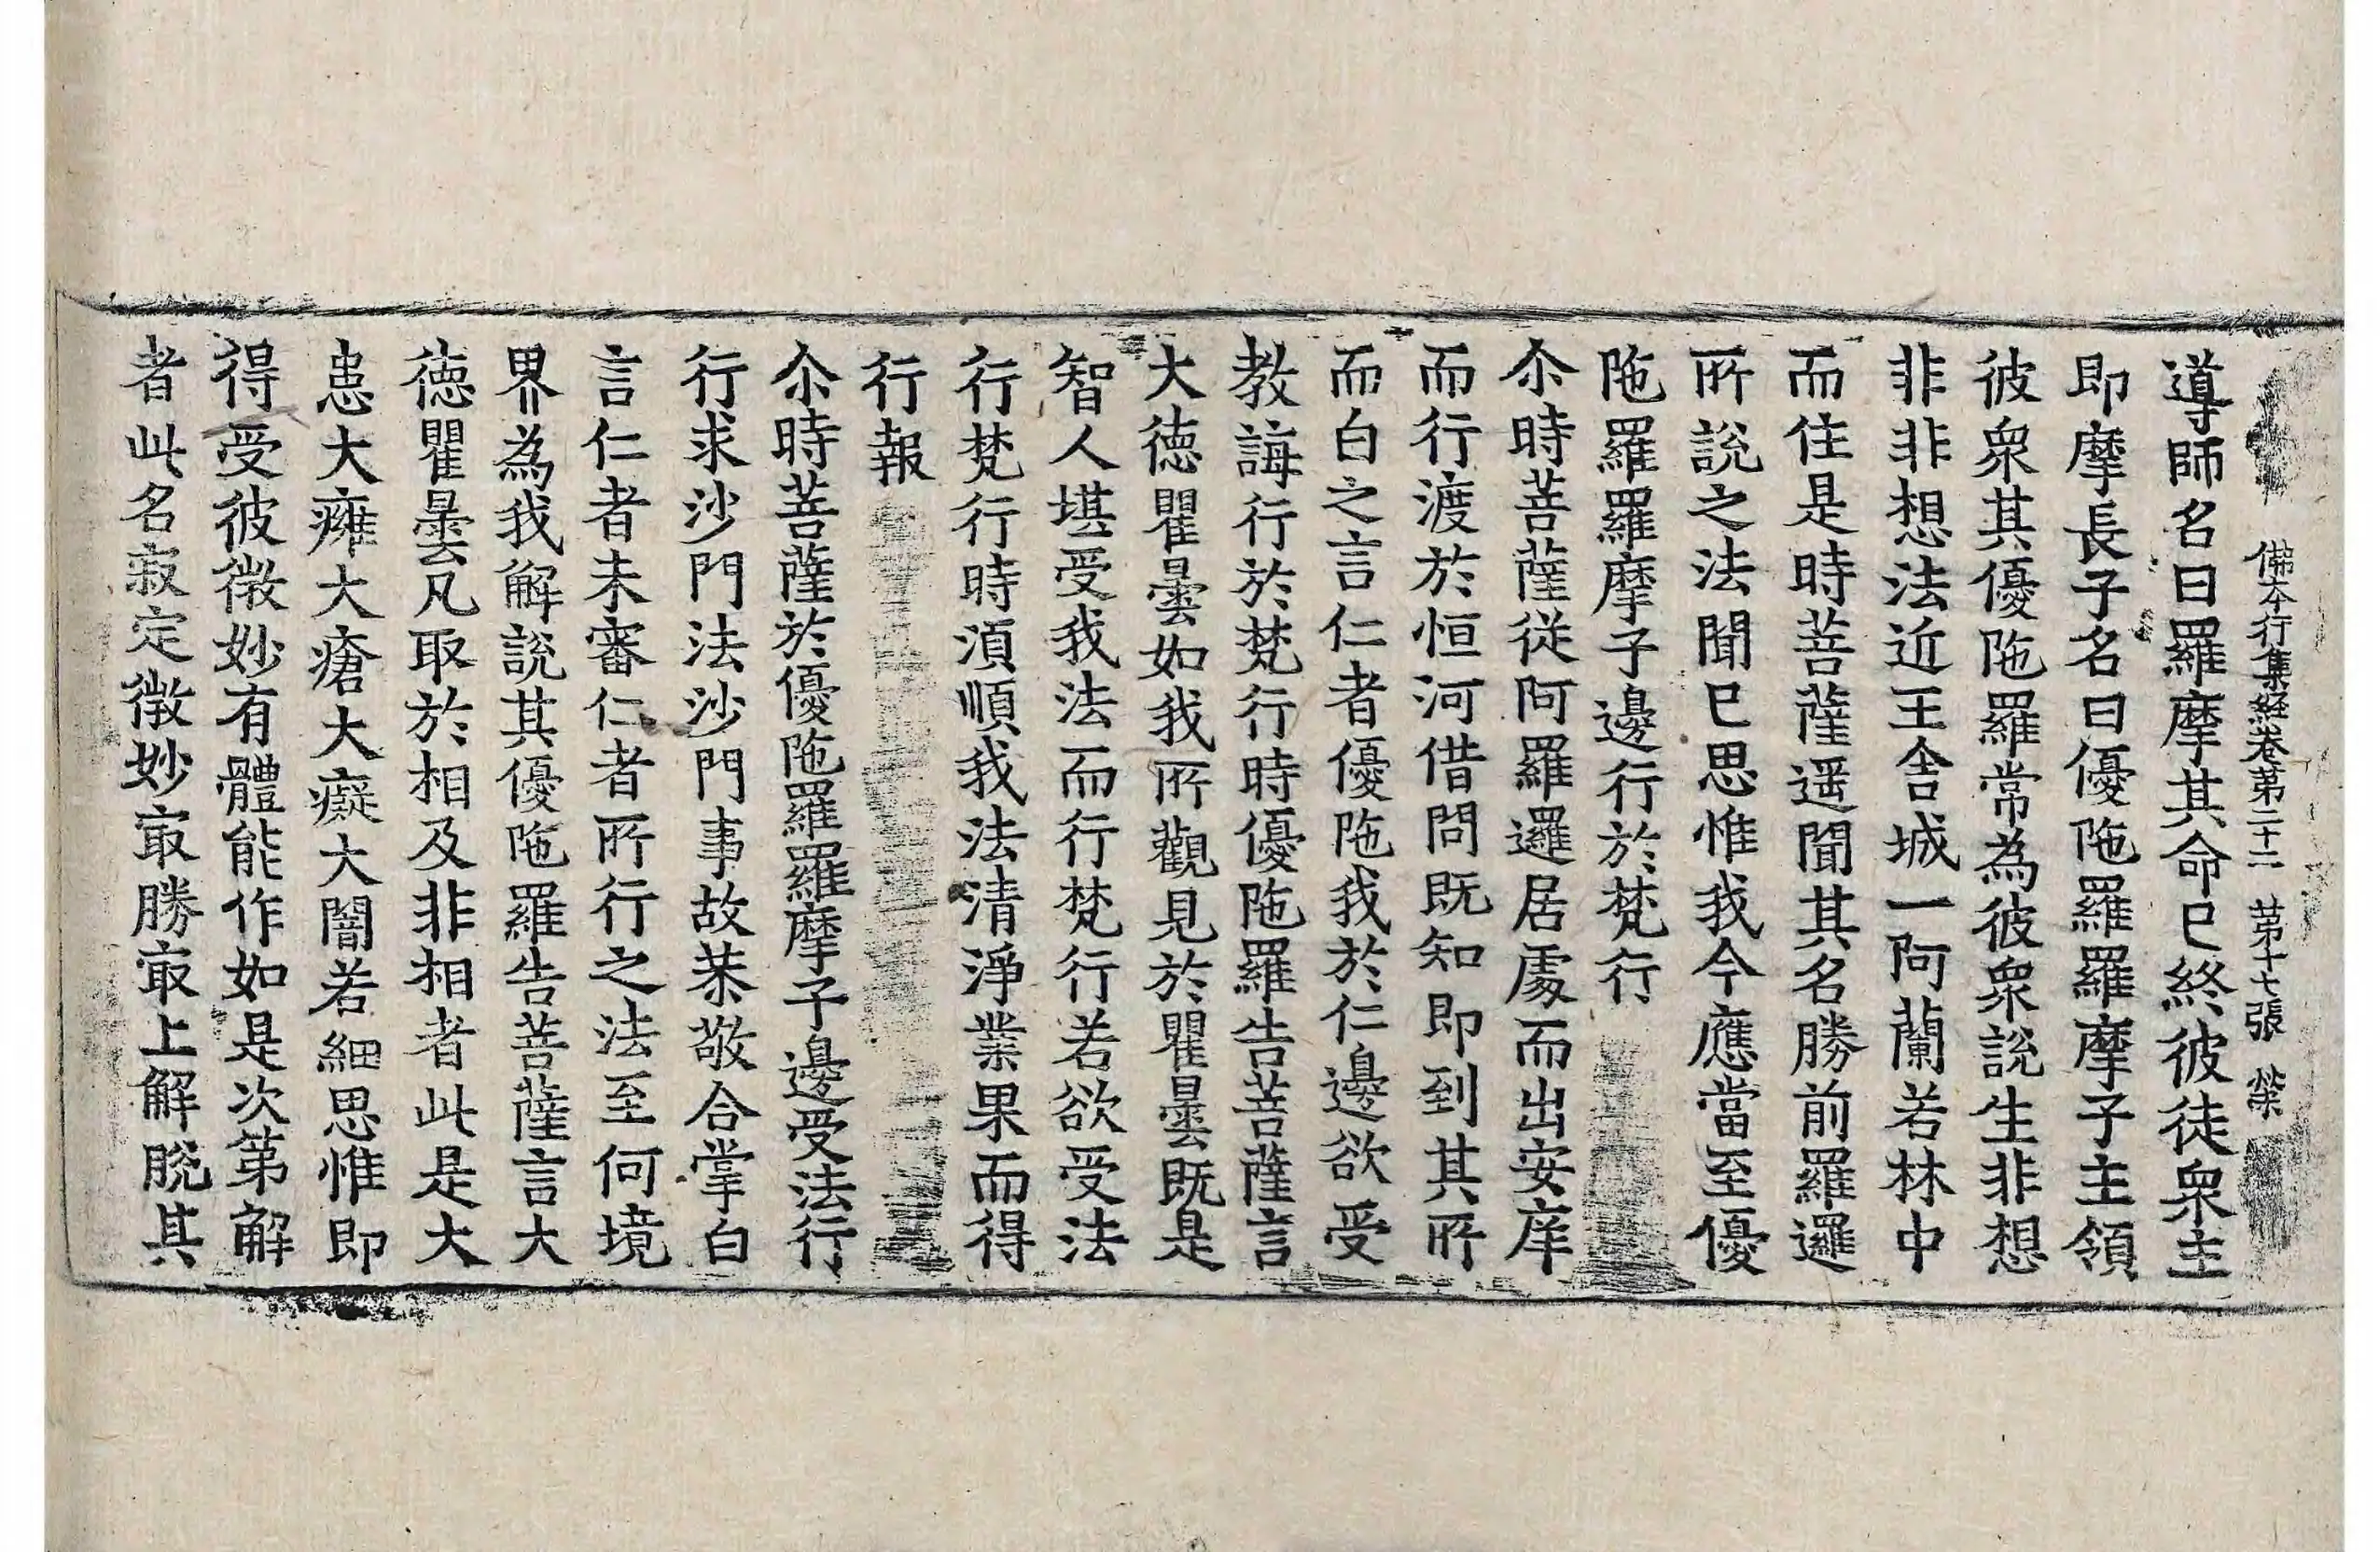 佛本行集経卷第二十二 苐十七張 榮
導師名曰羅摩其命已終彼徒衆主
即摩長子名曰優陁羅羅摩子主領
彼衆其優陁羅常為彼衆說生非想
非非想法近王舎城一阿蘭若林中
而住是時菩薩遥聞其名勝前羅邏
所說之法聞已思惟我今應當至優
陁羅羅摩子邊行於梵行
尒時菩薩従阿羅邏居處而出安庠
而行渡於恒河借問既知即到其所
而白之言仁者優陁我於仁邊欲受
教誨行於梵行時優陁羅告菩薩言
大徳瞿曇如我所觀見於瞿曇既是
智人堪受我法而行梵行若欲受法
行梵行時湏順我法清淨業果而得
行報
尒時菩薩於優陁羅羅摩子邊受法行
行求沙門法沙門事故恭敬合掌白
言仁者未審仁者所行之法至何境
界為我解說其優陁羅告菩薩言大
徳瞿曇凡取於相及非相者此是大
患大癰大瘡大癡大闇若細思惟即
得受彼微妙有體能作如是次苐解
者此名寂定微妙㝡勝㝡上解脫其